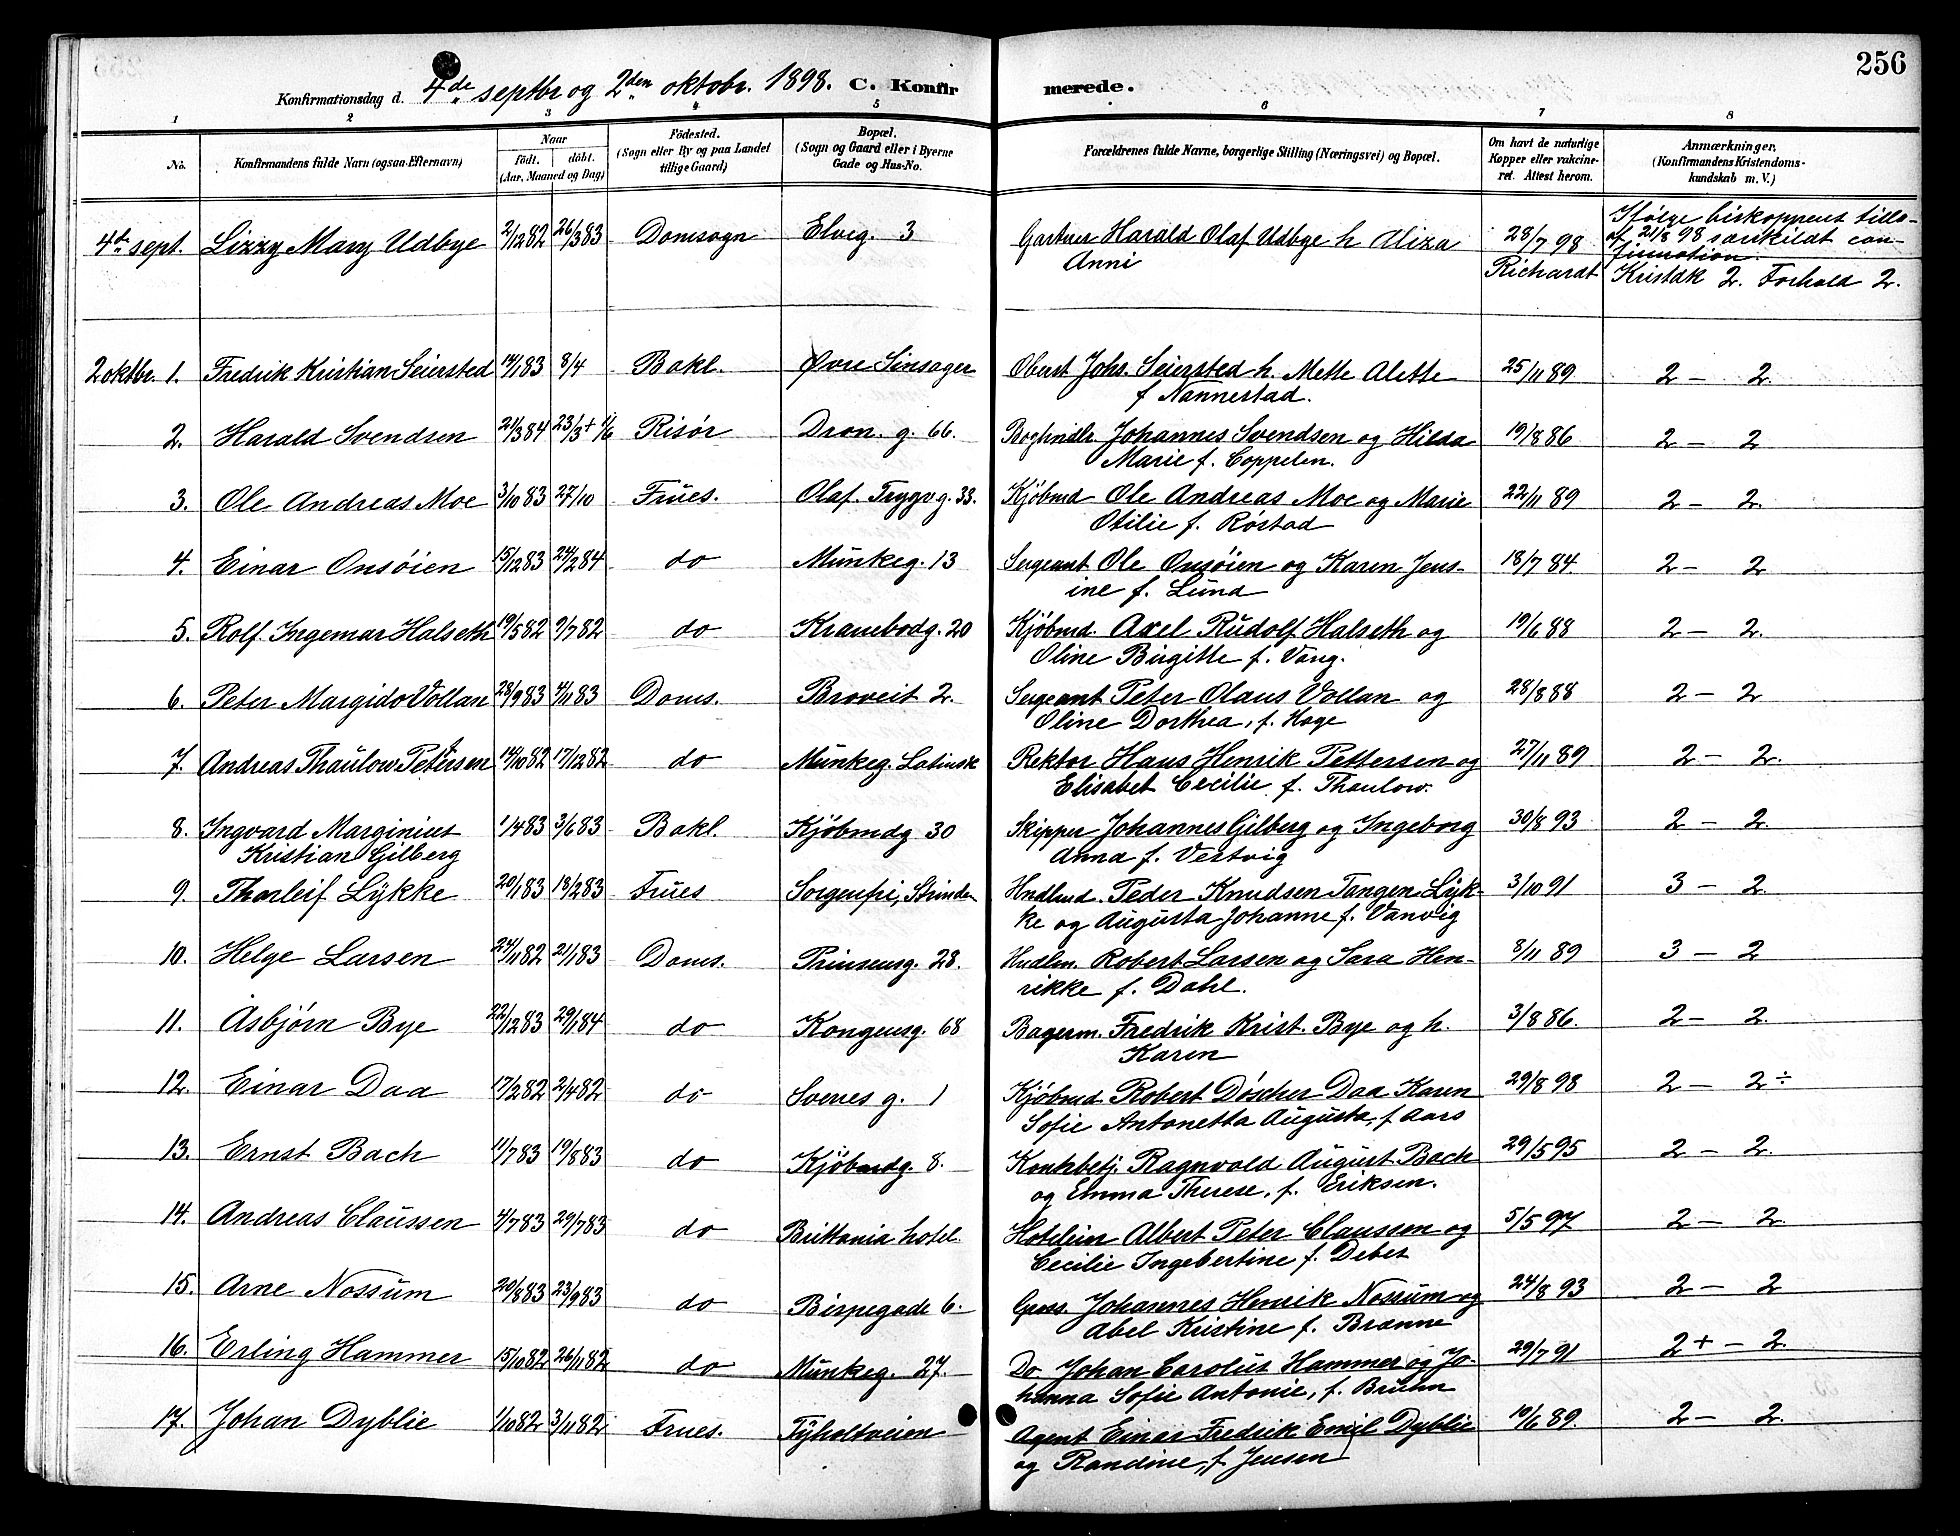 256
Konfirmationsdag d. 4de septbr og 2den oktobr. 1898. C. Konfirmerede.
1 2 3 4 5 6 7 8
No. Konfirmandens fulde Navn (ogsaa Efternavn) Naar födt. döbt. (Aar, Maaned og Dag) Födested. (Sogn eller By og paa Landet tillige Gaard) Bopæl. (Sogn og Gaard eller i Byerne Gade og Hus-No. Forældrenes fulde Navne, borgerlige Stilling (Næringsvei) og Bopæl. Om havt de naturlige Kopper eller vakcineret. Attest herom. Anmærkninger, (Konfirmandens Kristendomskundskab m. V.)
4de sept. Lizzy Mary Udbye 2/12 82 26/3 83 Domsogn Elveg. 3 Gartner Harald Olaf Udbye h Aliza 28/7 98 Ifölge biskoppens tilla-
Anni Richardt af 21/8 98 særskildt con-
firmation.
Kristdk 2. Forhold 2.
2 oktbr. 1. Fredrik Kristian Seiersted 14/1 83 8/4 Bakl. Øvre Sinsager Oberst Johs. Seiersted h. Mette Alette 25/11 89 2 – 2.
f Nannestad.
2. Harald Svendsen 21/3 84 23/3 + 1/6 Risör Dron. g. 66. Boghndlr Johannes Svendsen og Hilda 19/8 86 2 – 2
Marie f. Coppelen.
3. Ole Andreas Moe 3/10 83 27/10 Frues. Olaf. Trygv g. 33. Kjöbmd Ole Andreas Moe og Marie 22/11 89 2 – 2.
Otilie f. Röstad
4. Einar Onsöien 15/12 83 24/2 84 do Munkeg. 13 Sergeant Ole Onsöien og Karen Jens- 18/7 84. 2 – 2
ine f. Lund
5. Rolf Ingemar Halseth 19/5 82 9/7 82 do Krambodg. 20 Kjöbmd. Axel Rudolf Halseth og 19/6 88 2 – 2.
Oline Birgitte f. Vang.
6. Peter Margido Vollan 28/9 83 4/11 83 Doms. Broveit 2. Sergeant Peter Olaus Vollan og 28/8 88 2 – 2
Oline Dorthea, f. Hage
7. Andreas Thaulow Petersen 14/10 82 17/12 82 do Munkeg. Latinsk Rektor Hans Henrik Pettersen og 27/11 89 2 – 2.
Elisabet Cecilie f. Thaulow.
8. Ingvard Marginius 1/4 83 3/6 83 Bakl. Kjöbmdg 30 Skipper Johannes Gilberg og Ingeborg 30/8 93 2 – 2.
Kristian Gilberg Anna f. Vestvig
9. Thorleif Lykke 20/1 83 18/2 83 Frues Sorgenfri, Strinden Hndlmd. Peder Knudsen Tangen Lyk- 3/10 91 3 – 2.
ke og Augusta Johanne f. Vanvig
10. Helge Larsen 24/11 82 21/1 83 Doms. Prinsensg. 28. Hndlm. Robert Larsen og Sara Hen- 8/11 89 3 – 2
rikke f. Dahl.
11. Asbjörn Bye 22/12 83 29/1 84 do Kongensg. 68 Bagerm. Fredrik Krist. Bye og h. 3/8 86. 2 – 2.
Karen
12. Einar Daa 17/2 82 2/4 82 do Svenes g. 1 Kjöbmd Robert Döscher Daa Karen 29/8 98 2 – 2 ÷
Sofie Antonetta Augusta, f Aars
13. Ernst Bach 11/7 83 19/8 83 do Kjöbmdg. 8. Kontrbetj. Ragnvald August Bach 29/5 95 2 – 2.
og Emma Therese, f. Eriksen.
14. Andreas Claussen 4/7 83 29/7 83 do Brittania hotel. Hoteleier Albert Peter Claussen og 5/5 97 2 – 2
Cecilie Ingebertine f. Debes
15. Arne Nossum 20/8 83 23/9 83 do Bispegade 6. Gross. Johannes Henrik Nossum og 24/8 93 2 – 2
Abel Kristine f. Brænne
16. Erling Hammer 15/10 82 26/11 82 do Munkeg. 27. Do Johan Carolus Hammer og Jo- 29/7 91 2 + – 2.
hanna Sofie Antonie, f. Bruhn
17. Johan Dyblie 1/10 82 3/11 82 Frues. Tyholtveien Agent Einar Fredrik Emil Dyblie 10/6 89. 2 – 2.
og Randine, f Jensen